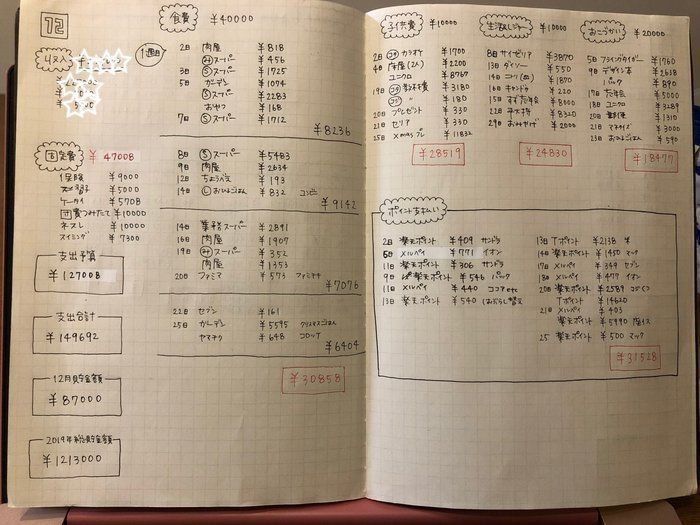 12
収入
食費 ¥40000
1週目
2日 肉屋 ¥818
スーパー ¥456
3日 Ⓢスーパー ¥1725
5日 ガーデン ¥1074
Ⓢスーパー ¥2283
おやつ ¥168
7日 Ⓢスーパー ¥1712
¥8236
固定費 ¥47008
保険 ¥9000
習字 ¥5000
ケータイ ¥5708
費つみたて ¥10000
ネスレ ¥10000
スイミング ¥7300
8日 Ⓢスーパー ¥5483
9日 肉屋 ¥2634
12日 ¥193
14日 Ⓛおひるごはん ¥832 コンビニ
¥9142
14日 業務スーパー ¥2891
16日 肉屋 ¥1907
19日 スーパー ¥352
肉屋 ¥1353
20日 ファミマ ¥573 ファミチキ
¥7076
22日 セブン ¥161
25日 ガーデン ¥5595 クリスマスごはん
ヤマナカ ¥648 コロッケ
¥6404
¥30858
支出予算
¥127008
支出合計
¥149692
12月貯金額
¥87000
2019年総貯金額
¥1213000
子供費 ¥10000
2日 カラオケ ¥1700
4日 床屋(2人) ¥2200
ユニクロ ¥8767
19日 ¥3180
¥180
20日 プレゼント ¥330
21日 セリア ¥330
25日 Xmasプレ ¥11832
¥28519
生活&レジャー ¥10000
8日 サイゼリア ¥3870
13日 ダイソー ¥550
14日 ニトリ ¥1870
16日 キャンドゥ ¥220
15日 忘年会 ¥8000
22日 ¥8320
29日 おみやげ ¥2000
¥24830
おこづかい ¥20000
5日 フライングタイガー ¥1760
9日 デザイン本 ¥2638
パック ¥890
17日 忘年会 ¥5000
18日 ユニクロ ¥3289
20日 郵便 ¥1310
21日 ¥3000
13日 おひるごはん ¥590
¥18477
ポイント支払い
2日 楽天ポイント ¥409 サンドラ
5日 メルペイ ¥771 イオン
11日 楽天ポイント ¥306 サンドラ
9日 楽天ポイント ¥546 パック
11日 メルペイ ¥440 ココアetc
13日 楽天ポイント はみがらし替え
13日 Tポイント ¥2138 米
14日 楽天ポイント ¥1450 マック
17日 メルペイ ¥349 セブン
18日 メルペイ ¥477 イオン
20日 楽天ポイント ¥2589
Tポイント ¥14620
21日 メルペイ ¥403
楽天ポイント ¥5990 座イス
25 楽天ポイント ¥500 マック
¥31528